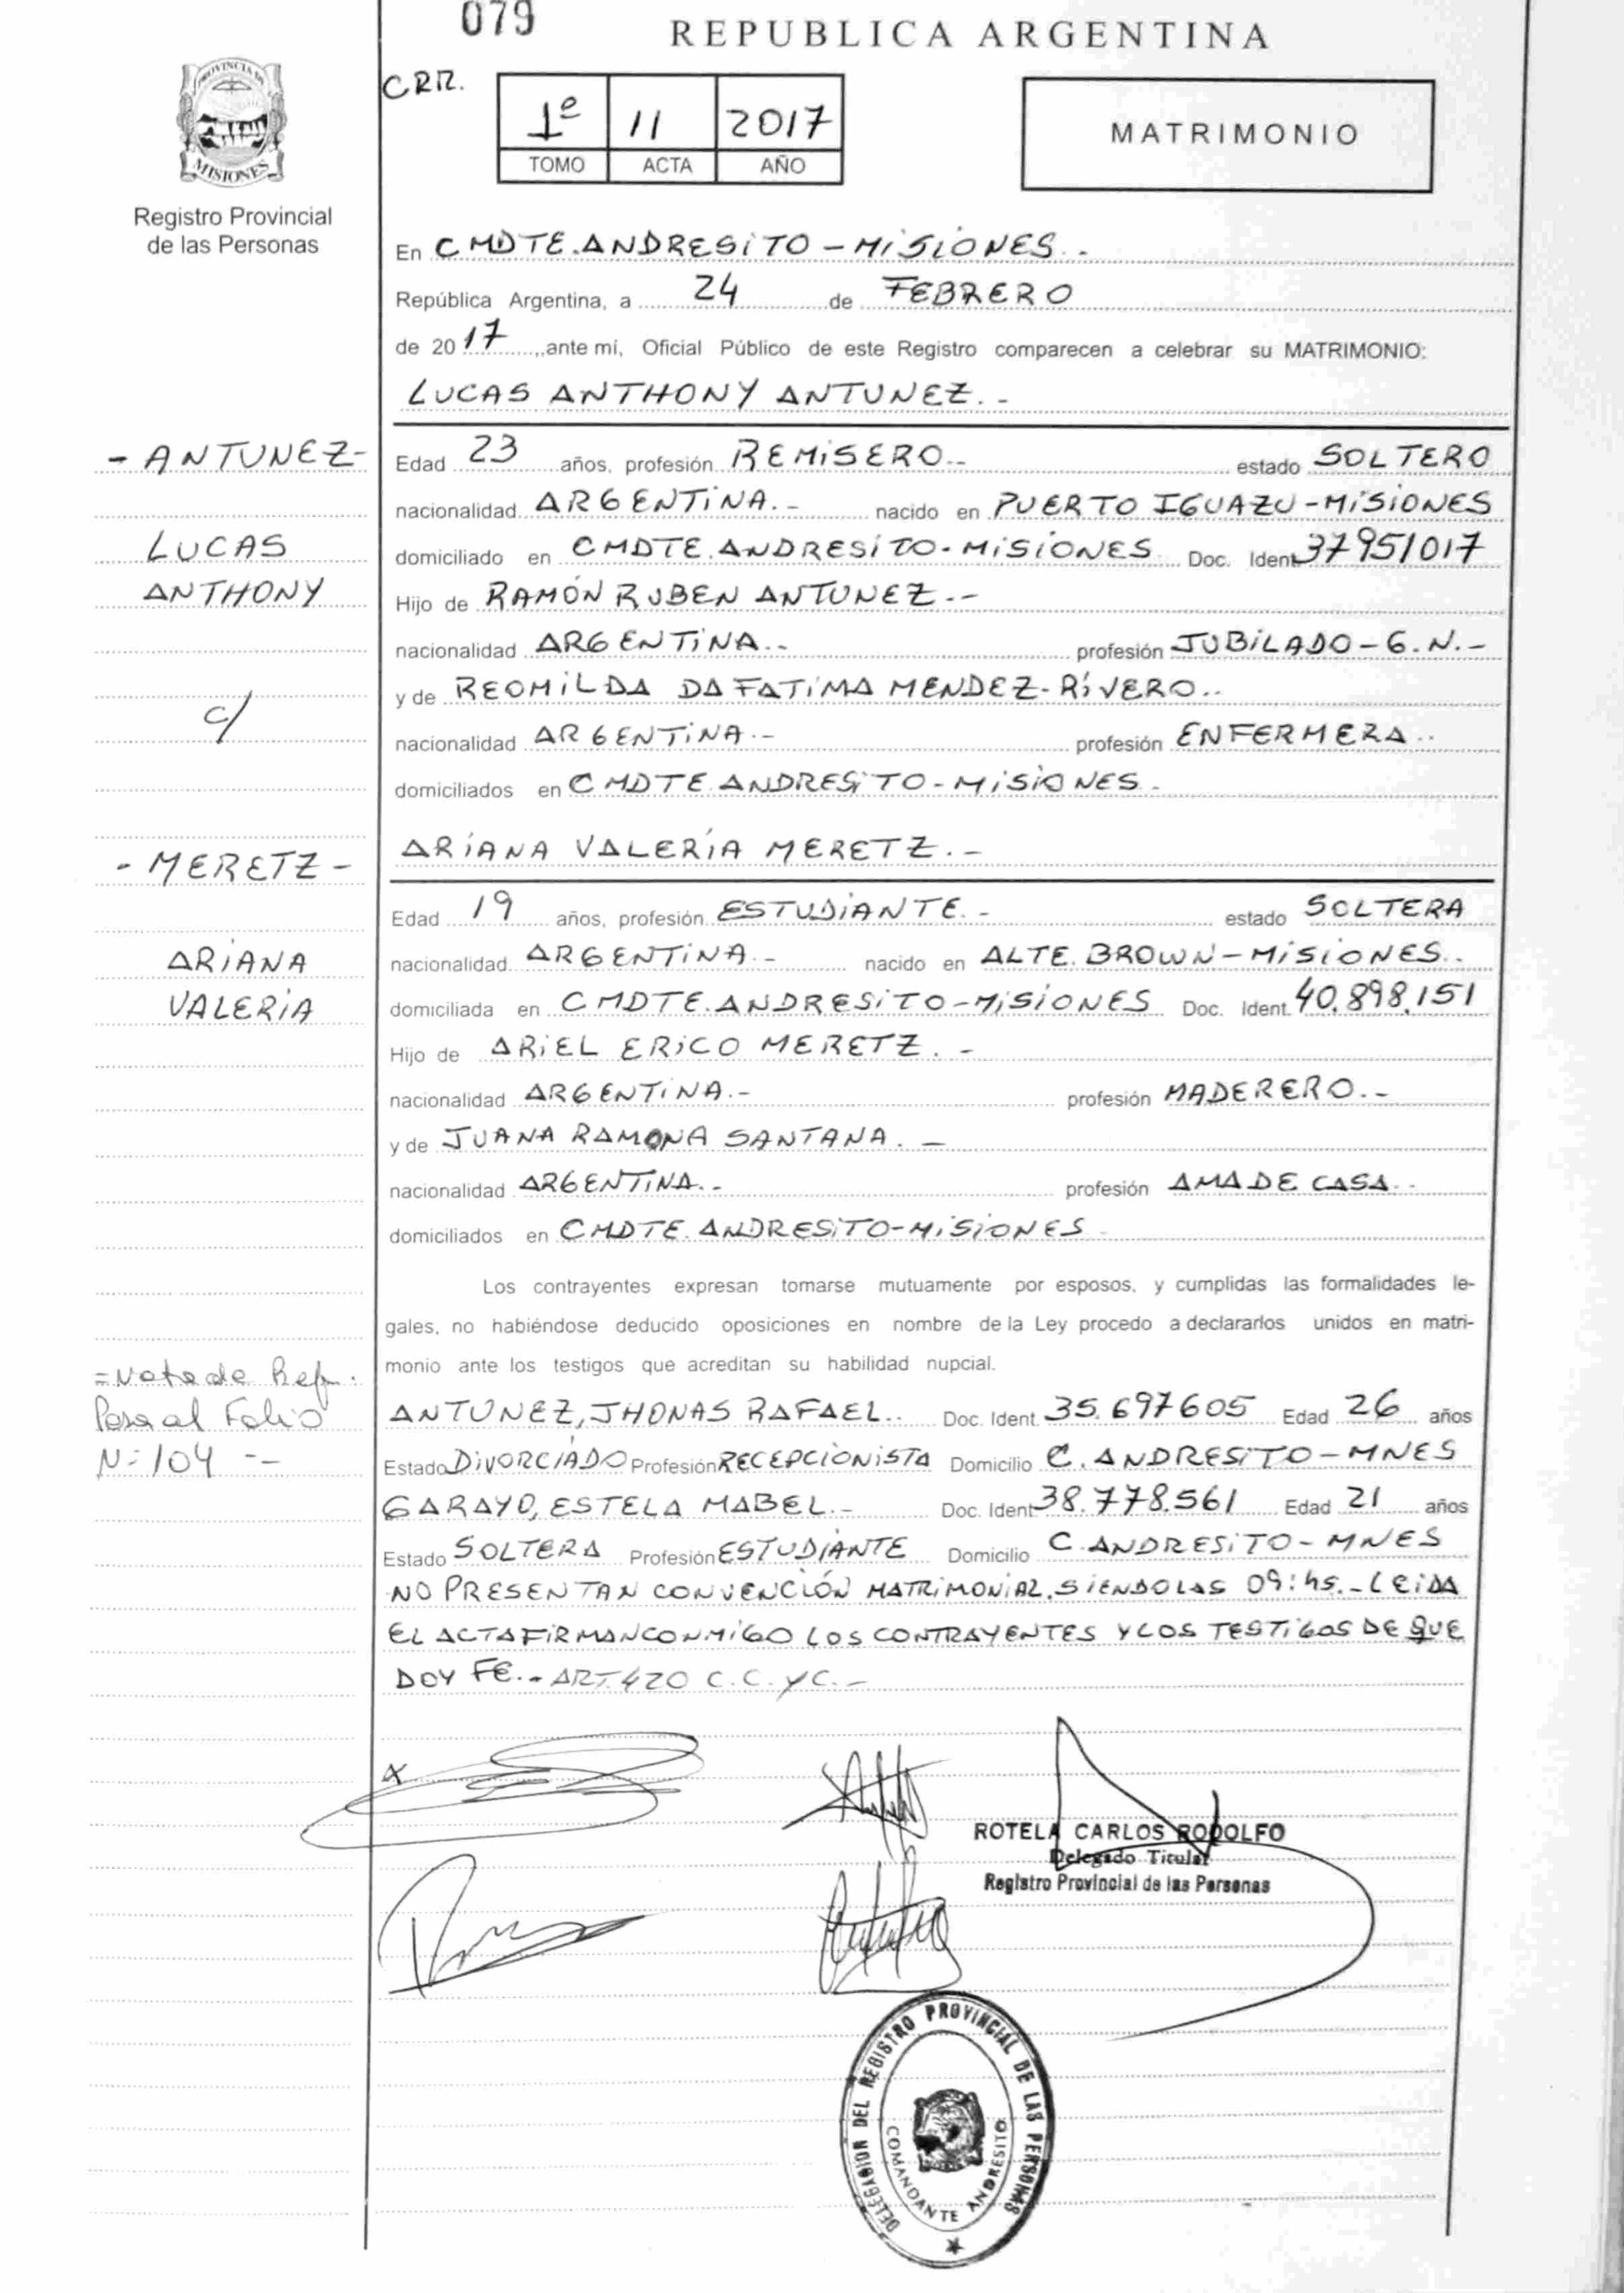 079
REPUBLICA ARGENTINA
PROVINCIA DE
MISIONES
CRR.
1º 11 2017
TOMO ACTA AÑO
MATRIMONIO
Registro Provincial
de las Personas
En CMDTE. ANDRESiTO - MiSiONES.-
República Argentina, a 24 de FEBRERO
de 2017, ante mí, Oficial Público de este Registro comparecen a celebrar su MATRIMONIO:
LUCAS ANTHONY ANTUNEZ.-
- ANTUNEZ-
Edad 23 años, profesión REMiSERO.- estado SOLTERO
nacionalidad ARGENTiNA.- nacido en PUERTO IGUAZU - MiSiONES
LUCAS
domiciliado en CMDTE. ANDRESiTO - MiSiONES Doc. Ident. 37951017
ANTHONY
Hijo de RAMÓN RUBEN ANTUNEZ.-
nacionalidad ARGENTiNA.- profesión JUBiLADO - G.N.-
y de REOMiLDA DA FATiMA MENDEZ-RiVERO.-
c/
nacionalidad ARGENTiNA.- profesión ENFERMERA.-
domiciliados en CMDTE ANDRESiTO - MiSiONES.-
ARiANA VALERiA MERETZ.-
- MERETZ -
Edad 19 años, profesión ESTUDiANTE.- estado SOLTERA
ARiANA
nacionalidad ARGENTiNA.- nacido en ALTE. BROWN - MiSiONES.-
VALERiA
domiciliada en CMDTE. ANDRESiTO - MiSiONES Doc. Ident. 40.898.151
Hijo de ARiEL ERiCO MERETZ.-
nacionalidad ARGENTiNA.- profesión MADERERO.-
y de JUANA RAMONA SANTANA.-
nacionalidad ARGENTiNA.- profesión AMA DE CASA.-
domiciliados en CMDTE. ANDRESiTO - MiSiONES.-
Los contrayentes expresan tomarse mutuamente por esposos, y cumplidas las formalidades le-
gales, no habiéndose deducido oposiciones en nombre de la Ley procedo a declararlos unidos en matri-
monio ante los testigos que acreditan su habilidad nupcial.
= Nota de Ref.
Pasa al Folio
Nº 104 --
ANTUNEZ, JHONAS RAFAEL.- Doc. Ident. 35.697605 Edad 26 años
Estado DiVORCiADO Profesión RECEPCiONiSTA Domicilio C. ANDRESiTO - MNES
GARAYO, ESTELA MABEL.- Doc. Ident. 38.778.561 Edad 21 años
Estado SOLTERA Profesión ESTUDiANTE Domicilio C. ANDRESiTO - MNES
NO PRESENTAN CONVENCiÓN MATRiMONiAL. SiENDO LAS 09:hs.- LEiDA
EL ACTA FiRMAN CONMiGO LOS CONTRAYENTES Y LOS TESTiGOS DE QUE
DOY FE.- ART. 420 C.C. y C.-
ROTELA CARLOS RODOLFO
Delegado Titular
Registro Provincial de las Personas
DELEGACION DEL REGISTRO PROVINCIAL DE LAS PERSONAS
COMANDANTE ANDRESITO